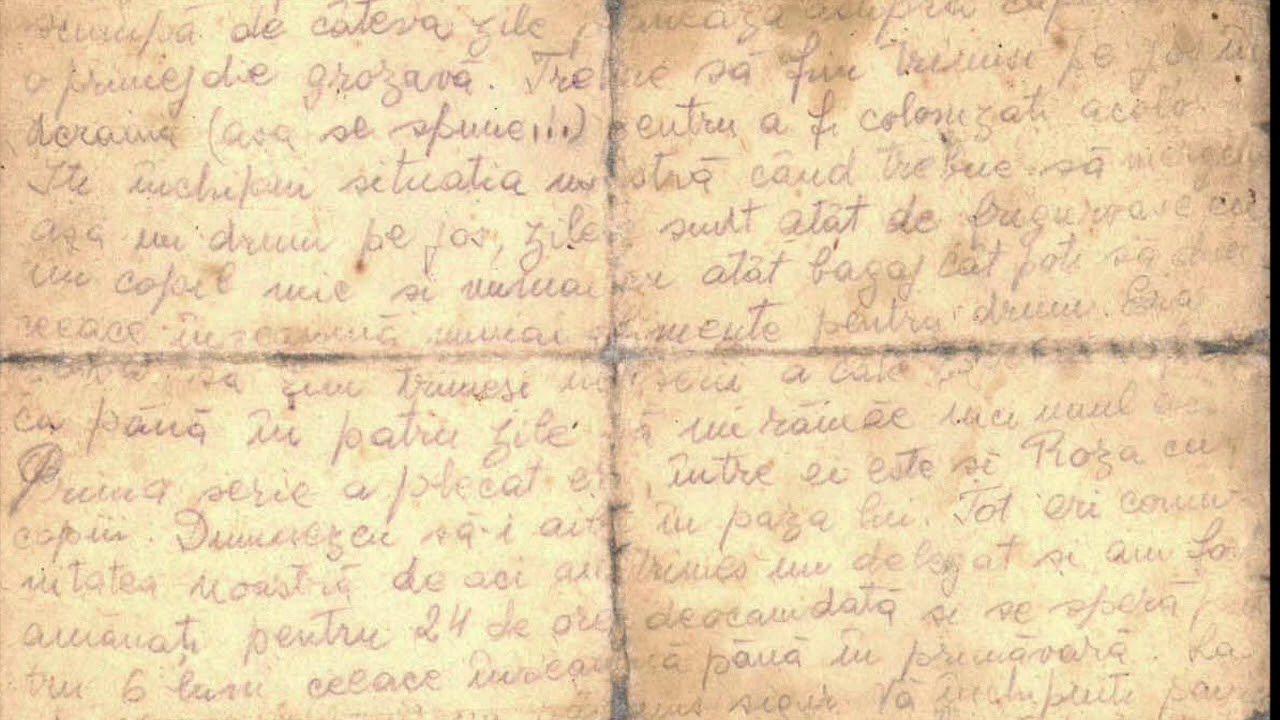 scumpă de câteva zile planează asupra
o primejdie grozavă. Trebue să fim trimiși pe jos în
Ucraina (asa se spune!!!) pentru a fi colonizati acolo
Iti inchipui situatia noastră când trebue să mergem
asa un drum pe jos, zilele sunt atât de friguroase cu
un copil mic si numai cu atât bagaj cât poti să duci
ceeace înseamnă numai alimente pentru drum. Era
să fim trimesi in serii a câte
ca până în patru zile să nu rămâe nici unul
Prima serie a plecat eri, între ei este si Roza cu
copiii. Dumnezeu să-i aibă în paza lui. Tot eri comu-
nitatea noastră de aci au trimes un delegat si am fo
amânați pentru 24 de ore deocamdată si se speră
tru 6 luni ceeace înseamnă până în primăvară.
sigur Vă închipuiti